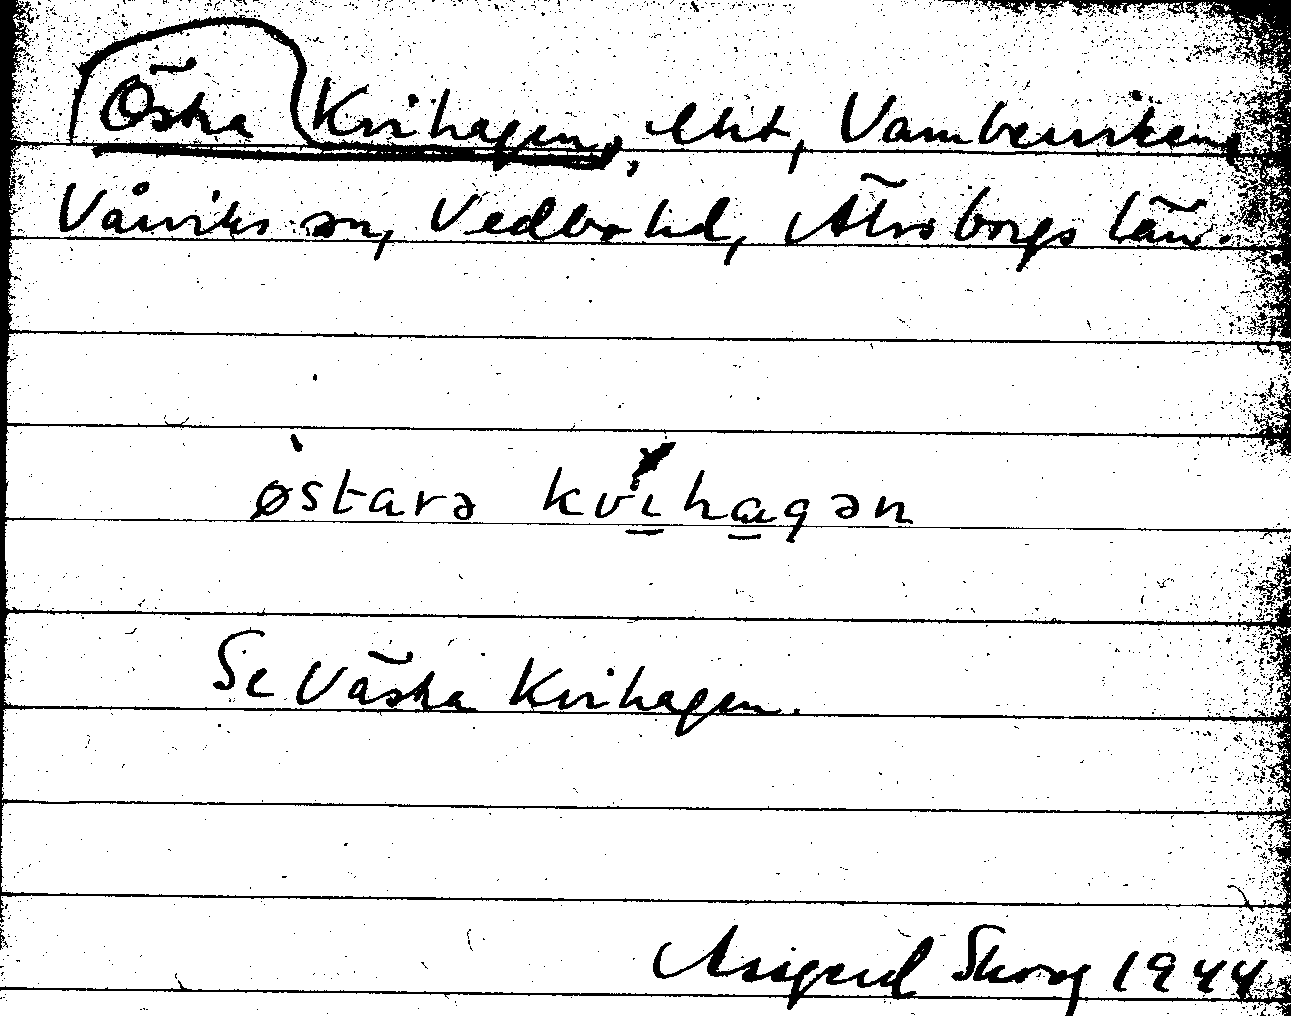 Östra Kvihagen, lht, Vambersviken,
Vårviks sn, Vedbo hd, Älvsborgs län.
østarə kvıhagən
Se Västra Kvihagen.
Assigerd Skoog 1944